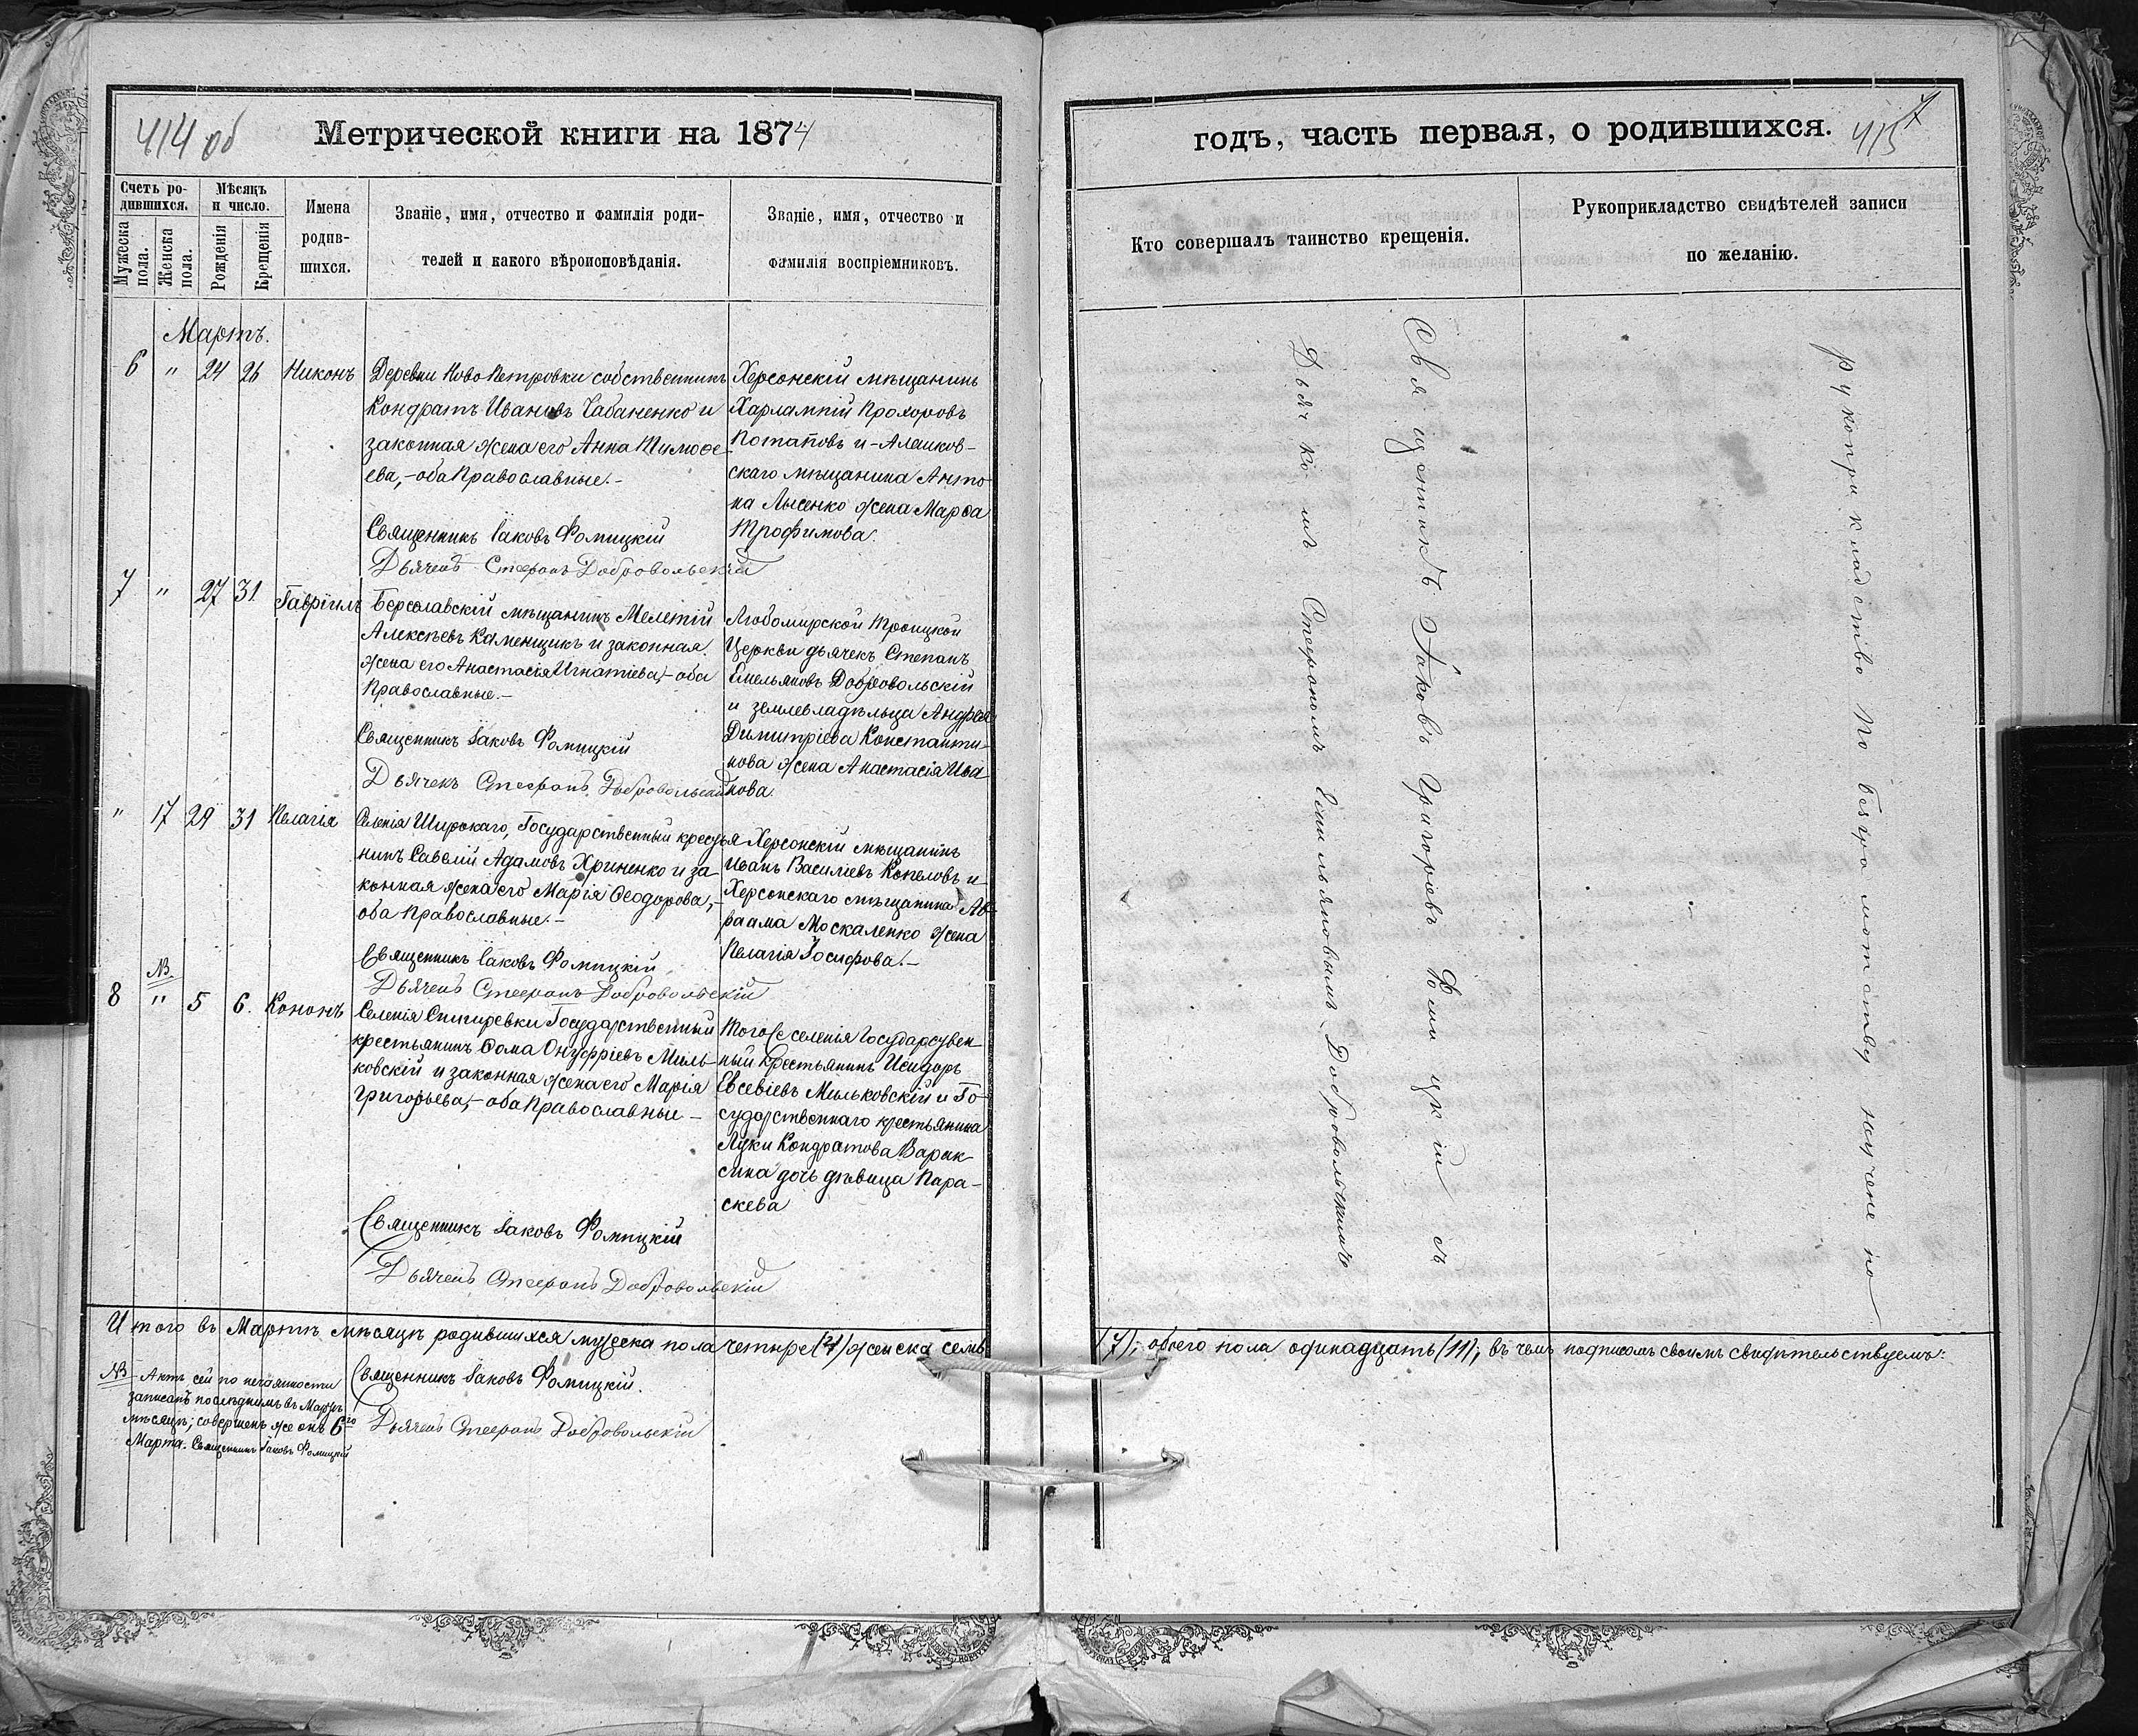 414 об
Метрической книги на 1874
Счетъ ро-
дившихся.
Мѣсяцъ
и число.
Мужеска
пола.
Женска
пола.
Рожденія
Крещенія
Имена
родив-
шихся.
Званіе, имя, отчество и фамилія роди-
телей и какого вѣроисповѣданія.
Званіе, имя, отчество и
фамилія воспріемниковъ.
Мартъ.
6 " 24 26 Никонъ
Деревни Ново Петровки собственникъ
Кондратъ Ивановъ Чабаненко и
законная жена его Анна Тимоѳе-
ева, - оба Православные. -
Священникъ Іаковъ Фомицкій
Дьячекъ Стефанъ Добровольскій
Херсонскій мѣщанинъ
Харлампій Прохоровъ
Потаповъ и - Алешков-
скаго мѣщанина Анто-
на Лысенко жена Марѳа
Трофимова.
7 " 27 31 Гавріилъ
Бериславскій мѣщанинъ Мелетій
Алексѣевъ Каменщикъ и законная
жена его Анастасія Игнатіева, - оба
Православные. -
Священникъ Іаковъ Фомицкій
Дьячекъ Стефанъ Добровольскій
Любомирской Троицкой
Церкви дьячекъ Степанъ
Емельяновъ Добровольскій
и землевладѣльца Андрея
Димитріева Константи-
нова жена Анастасія Ива-
нова.
" 17 29 31 Пелагія
Селенія Широкаго, Государственный крестья-
нинъ Савелій Адамовъ Хриненко и за-
конная жена его Марія Ѳеодорова, -
оба Православные. -
Священникъ Іаковъ Фомицкій
Дьячекъ Стефанъ Добровольскій
Херсонскій мѣщанинъ
Иванъ Василіевъ Копеловъ и
Херсонскаго мѣщанина Ав-
раама Москаленко жена
Пелагія Іосифова. -
NB
8 " 5 6. Кононъ
Селенія Снигиревки Государственный
крестьянинъ Ѳома Онуфріевъ Миль-
ковскій и законная жена его Марія
Григорьева, - оба Православные -
Священникъ Іаковъ Фомицкій
Дьячекъ Стефанъ Добровольскій
Того же селенія Государствен-
ный крестьянинъ Исидоръ
Евсевіевъ Мильковскій и Го-
сударственнаго крестьянина
Луки Кондратова Варак-
сина дочь дѣвица Пара-
скева
Итого въ Мартѣ мѣсяцѣ родившихся мужеска пола четыре (4) женска семь
Священникъ Іаковъ Фомицкій.
Дьячекъ Стефанъ Добровольскій
NB Актъ сей по нечаянности
записанъ послѣднимъ въ Мартѣ
мѣсяцѣ; совершенъ же онъ 6го
Марта. Священникъ Іаковъ Фомицкій
годъ, часть первая, о родившихся.
415
7
Кто совершалъ таинство крещенія.
Рукоприкладство свидѣтелей записи
по желанію.
Священникъ Іаковъ Григорьевъ Фомицкій съ
Дьячкомъ Стефаномъ Емильяновымъ Добровольскимъ
Рукоприкладство по безграмотству неучене но
(7), обоего пола одинадцать (11); въ чемъ подписомъ своимъ свидѣтельствуемъ: